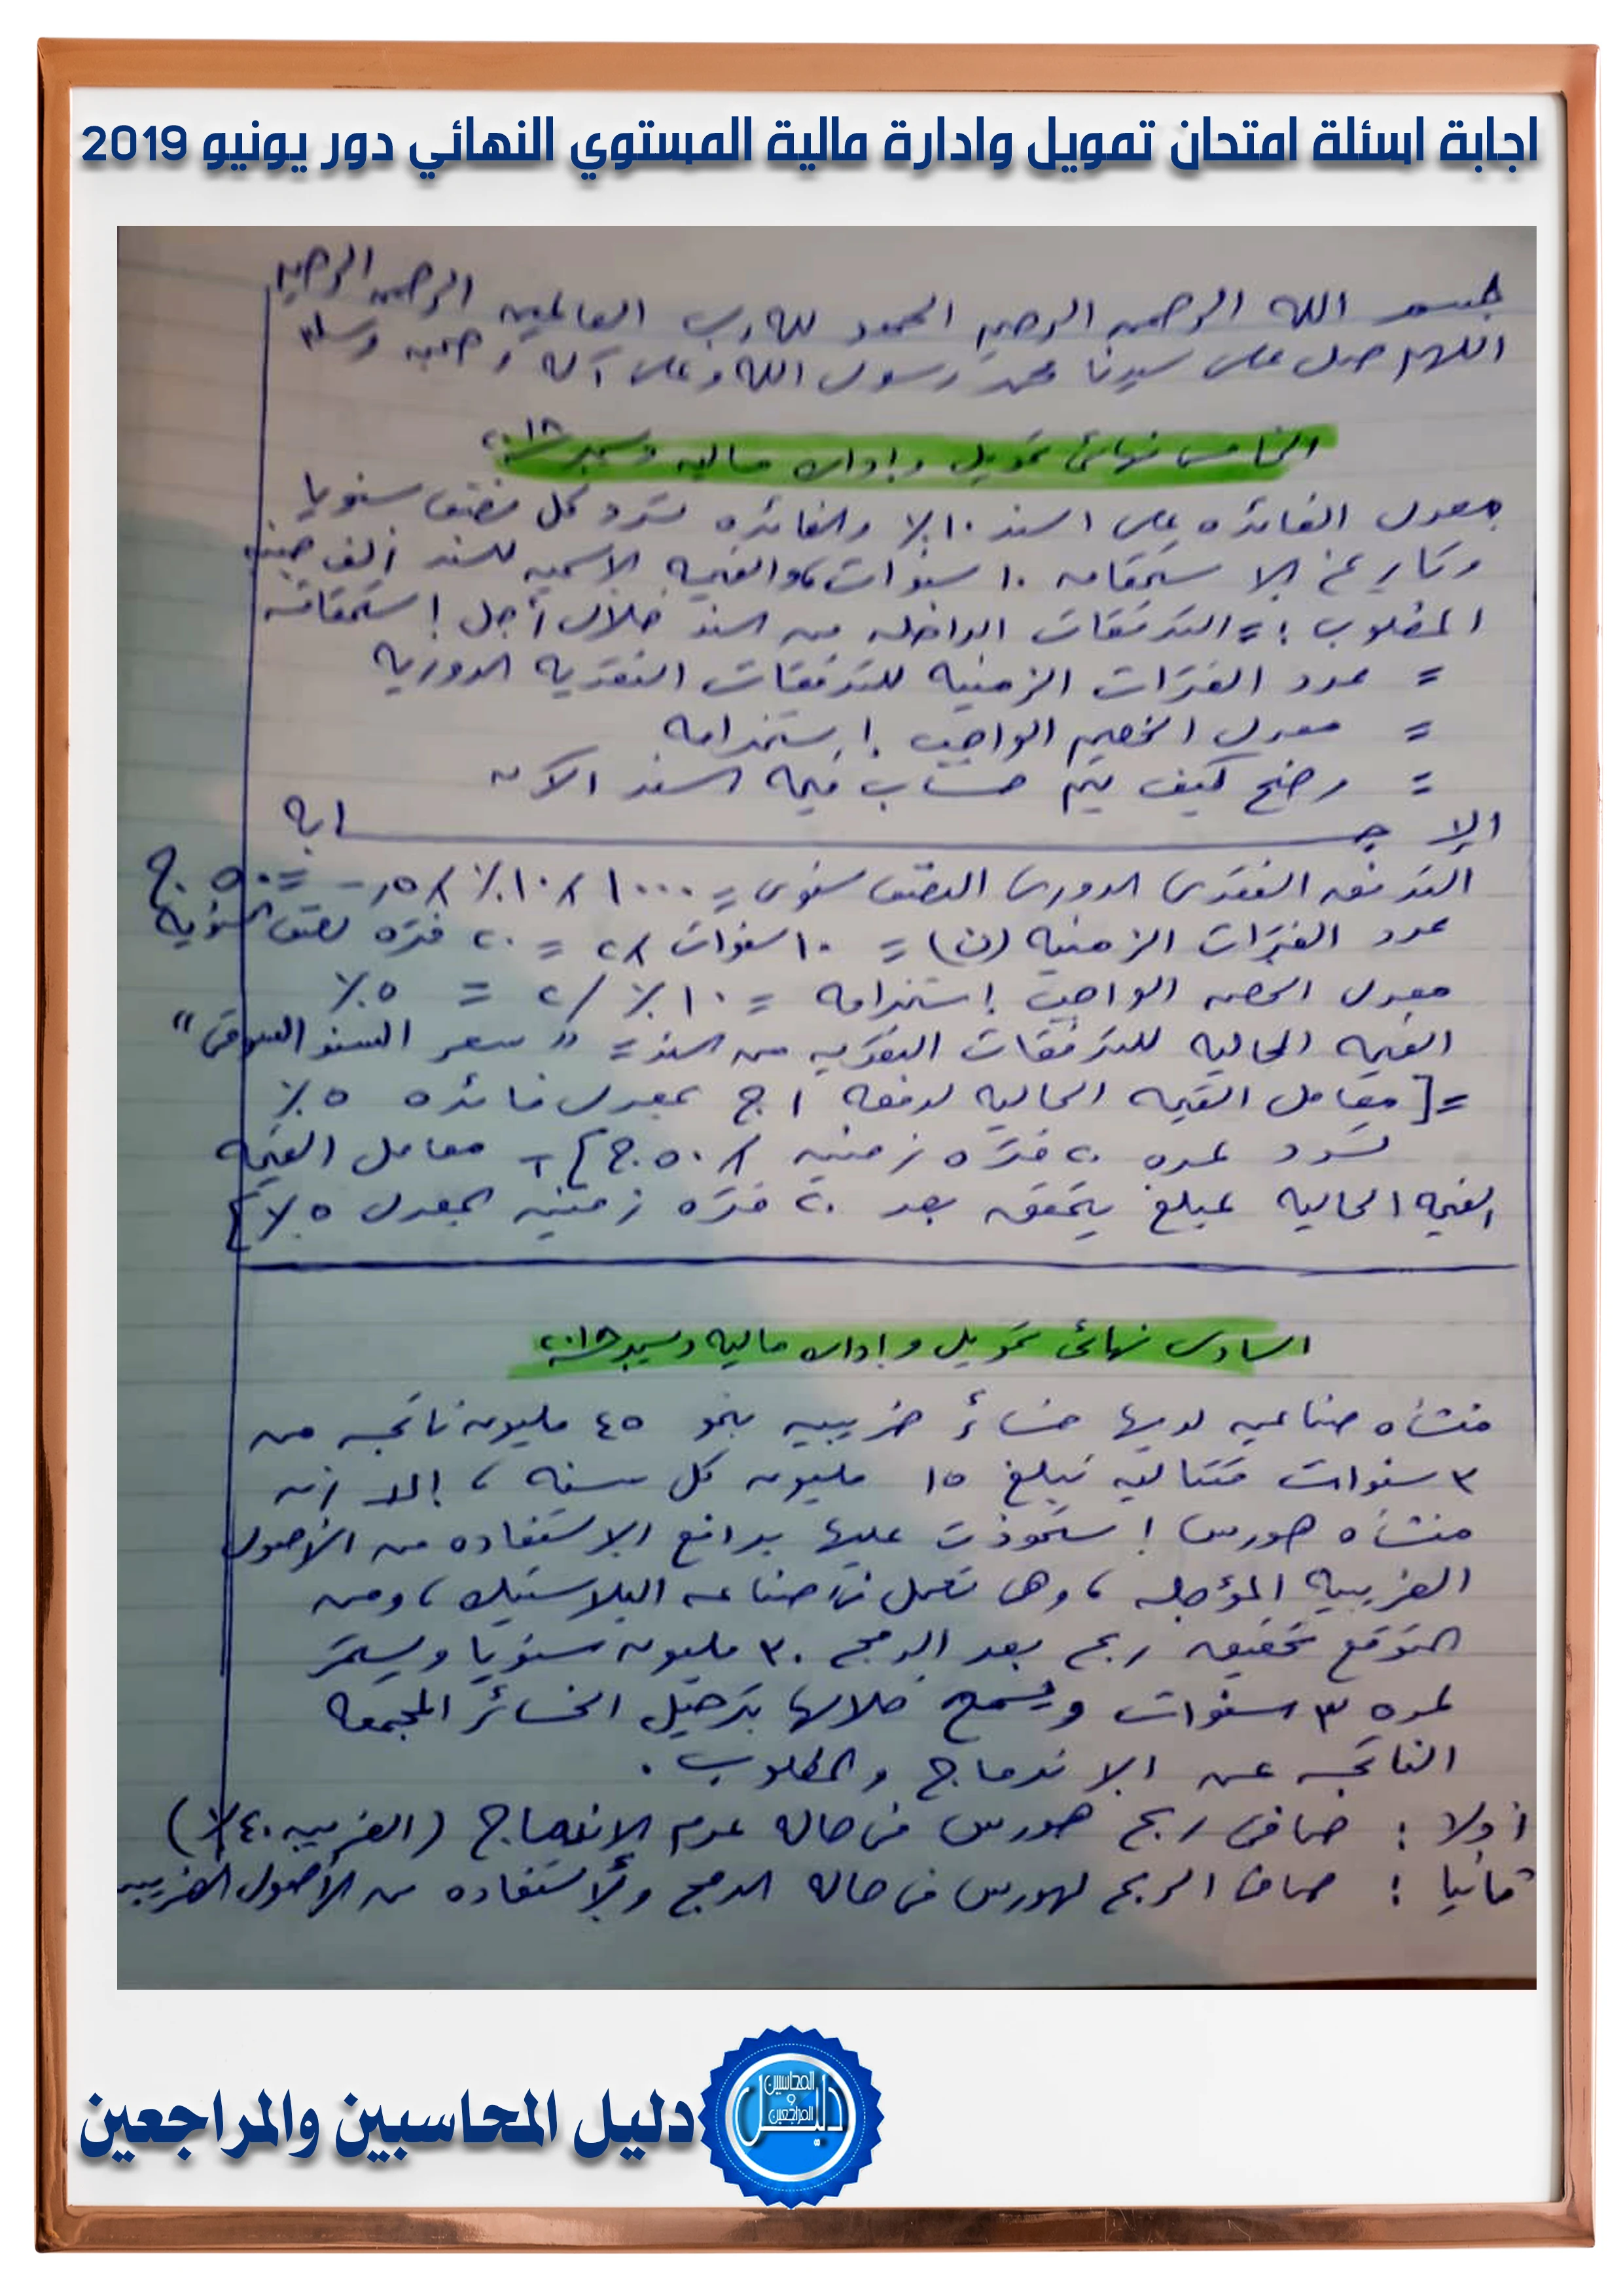 اجابة اسئلة امتحان تمويل وادارة مالية المستوي النهائي دور يونيو 2019
بسم الله الرحمن الرحيم الحمد لله رب العالمين الرحمن الرحيم
اللهم صل على سيدنا محمد رسول الله وعلى آله وصحبه وسلم
الخامس نهائى تمويل وإداره ماليه ديسمبر ٢٠١٨
معدل الفائده على السند ١٠٪ والفائده تسدد كل نصف سنويا
وتاريخ الاستحقاق ١٠ سنوات، والقيمه الاسميه للسند ألف جنيه
المطلوب : = التدفقات الداخله من السند خلال أجل إستحقاقه
= عدد الفترات الزمنيه للتدفقات النقديه الدوريه
= معدل الخصم الواجب إستخدامه
= وضح كيف يتم حساب قيمه السند الآن
الإجــــابه
التدفق النقدى الدورى النصف سنوى = ١٠٠٠ × ١٠٪ × ٥ر- = ٥٠ ج
عدد الفترات الزمنيه (ن) = ١٠ سنوات × ٢ = ٢٠ فتره نصف السنويه
معدل الخصم الواجب إستخدامه = ١٠٪ / ٢ = ٥٪
القيمه الحاليه للتدفقات النقديه من السند = "سعر السند السوقى"
= [معامل القيمه الحاليه لدفعه ١ ج بمعدل فائده ٥٪
تسدد لمده ٢٠ فتره زمنيه × ٥٠ ج] + معامل القيمه
القيمه الحاليه لمبلغ يتحقق بعد ٢٠ فتره زمنيه بمعدل ٥٪]
السادس نهائى تمويل وإداره ماليه ديسمبر ٢٠١٨
منشاه صناعيه لديها خسائر ضريبيه بنحو ٤٥ مليون ناتجه من
٣ سنوات متتاليه تبلغ ١٥ مليون كل سنه ، إلا أن
منشاه هورس إستحوذت عليها بدافع الاستفاده من الأصول
الضريبيه المؤجله ، وهى تعمل فى صناعه البلاستيك ، ومن
المتوقع تحقيق ربح بعد الدمج ٣٠ مليون سنويا ويستمر
لمده ٣ سنوات ويسمح خلالها بترحيل الخسائر المجمعه
الناتجه عن الاندماج والمطلوب .
أولا : صافى ربح هورس فى حاله عدم الاندماج (الضريبه ٤٠٪)
ثانيا : صافى الربح لهورس فى حاله الدمج والاستفاده من الأصول الضريبيه
دليل المحاسبين والمراجعين
دليل المحاسبين و المراجعين